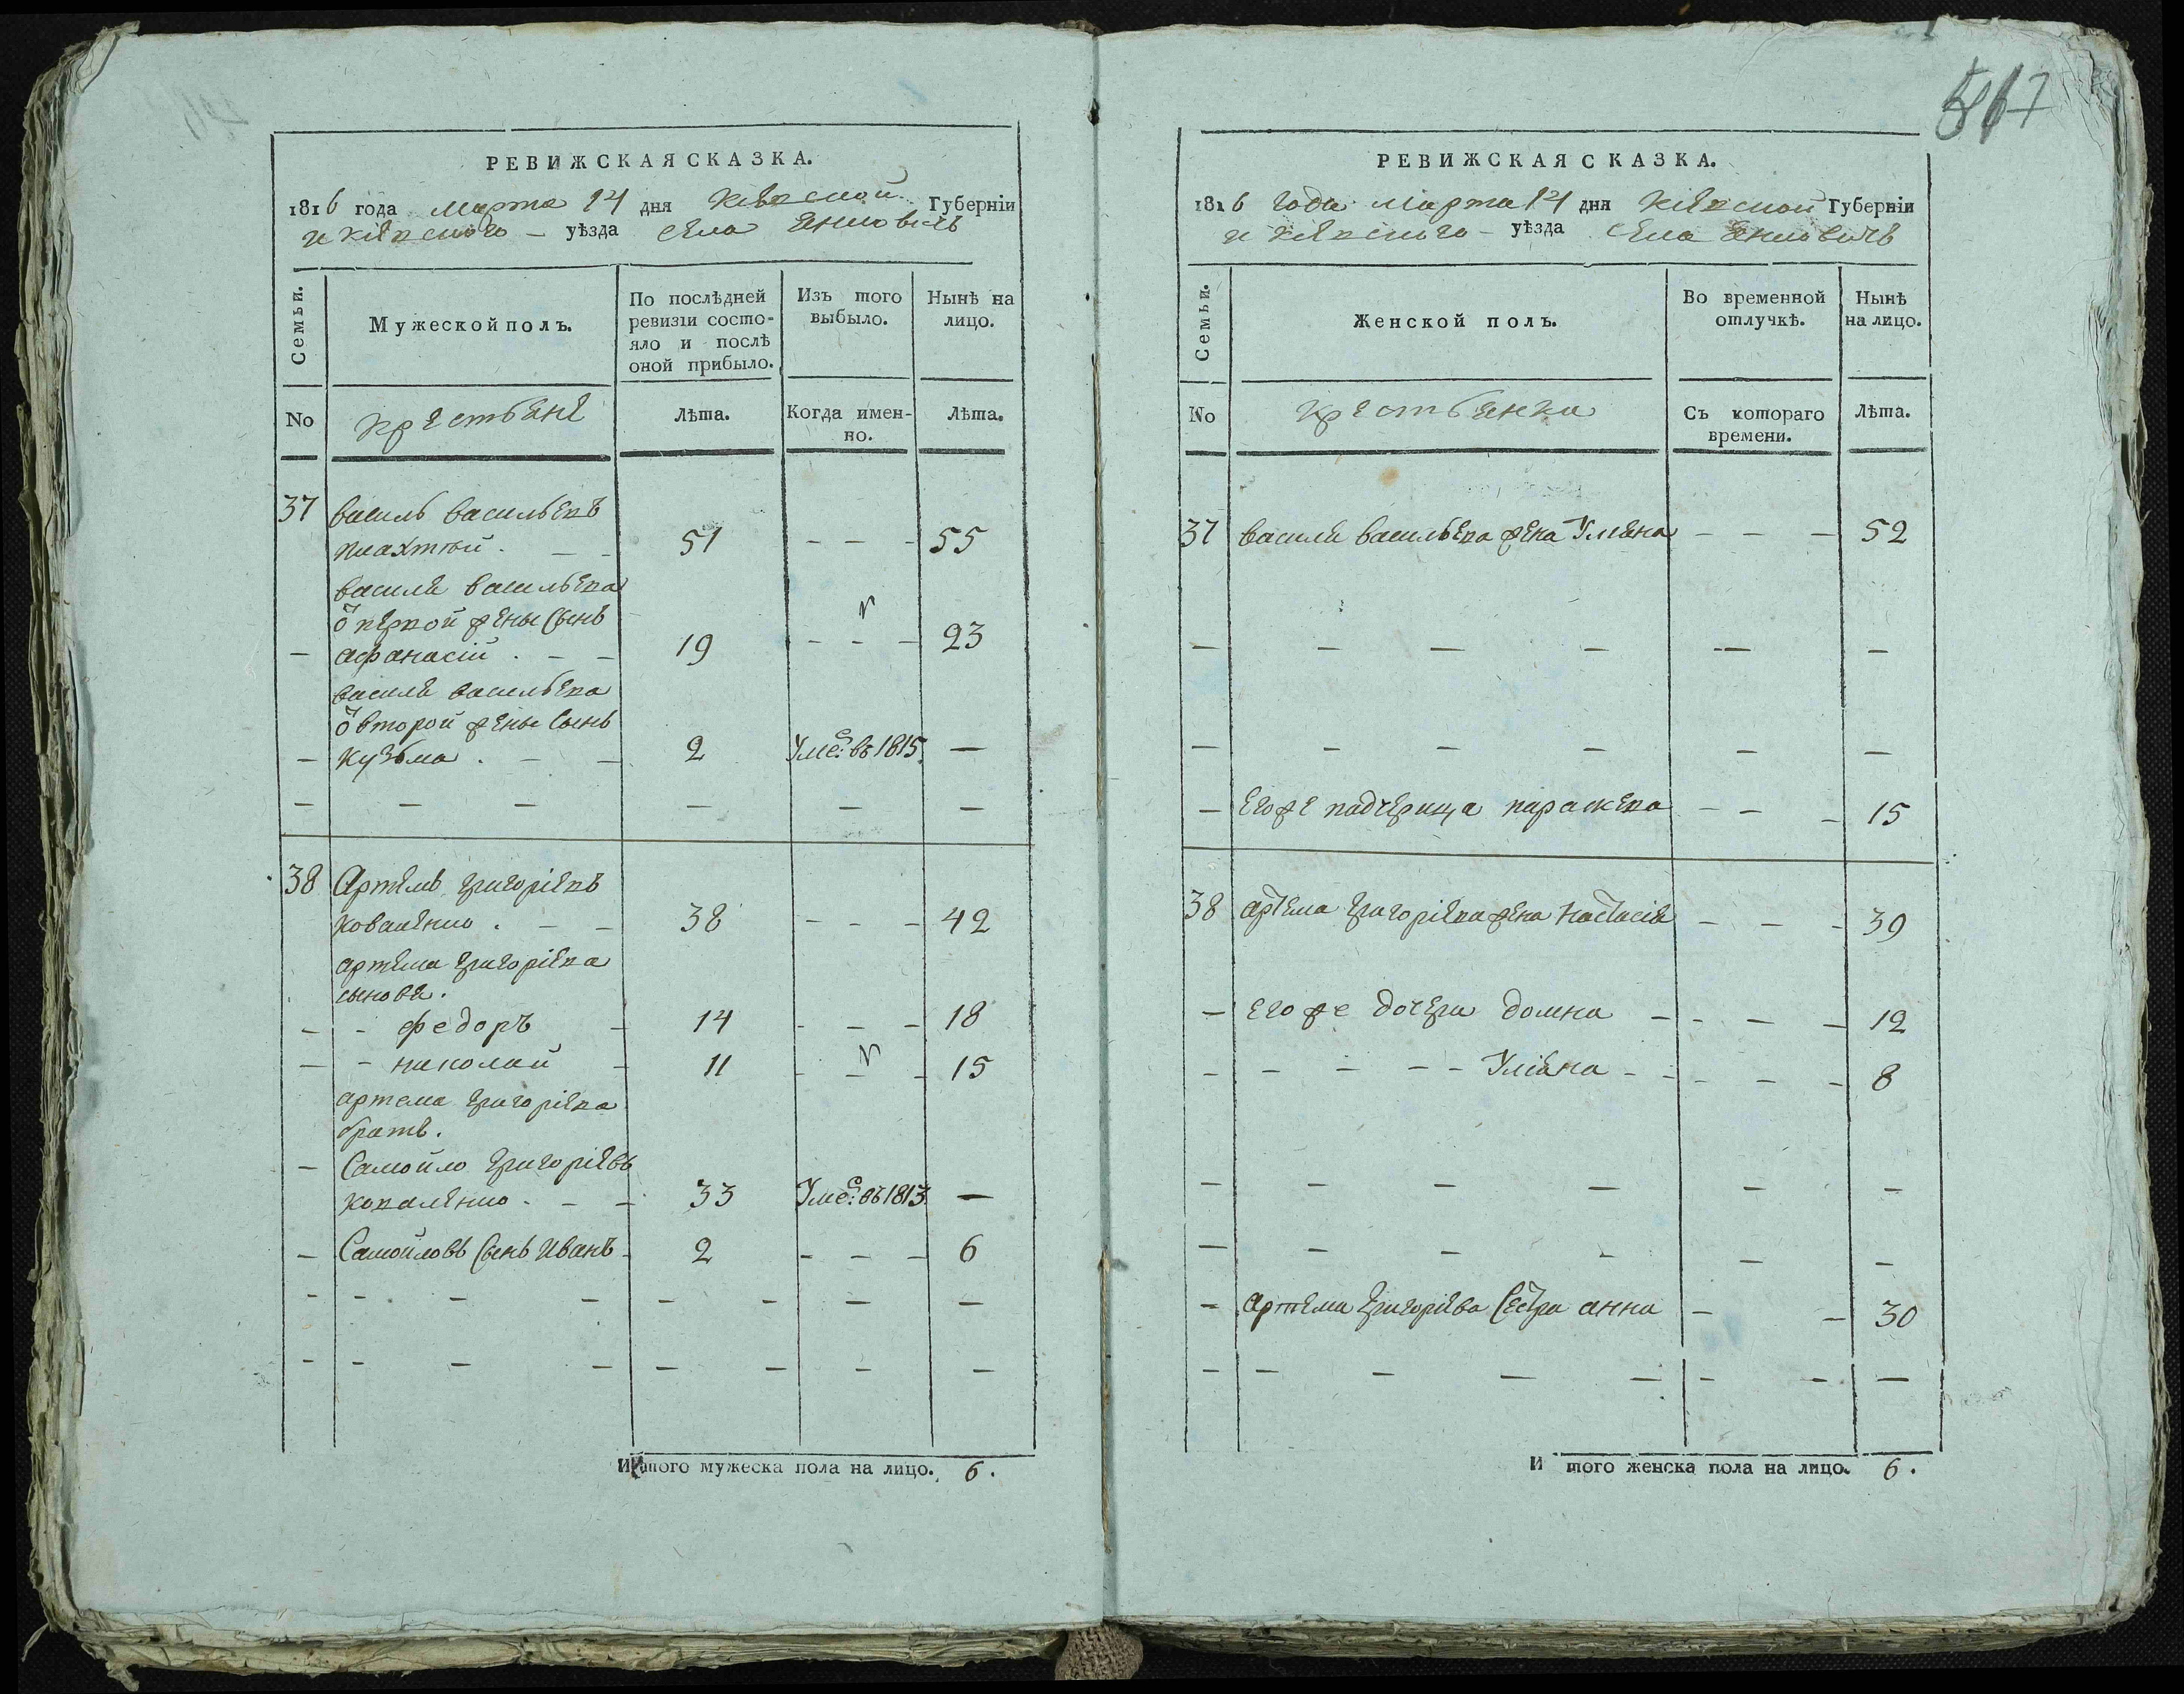 567
РЕВИЖСКАЯ СКАЗКА.
1816 года марта 14 дня Кіевской Губерніи
и Кіевского — уѣзда села
Семьи.
Мужеской полъ.
По послѣдней ревизіи состо-
яло и послѣ
оной прибыло.
Изъ того
выбыло.
Нынѣ на
лицо.
No
крестьяне
Лѣта.
Когда имен-
но.
Лѣта.
37 василь васильевъ
51 - - - 55
василя васильева
ѿ первой жены сынъ
— афанасій . — — 19 - - - 23
василя васильева
ѿ второй жены сынъ
— кузьма . - — 2 Умеръ въ 1815 —
— — — — — —
38 Артемъ григоріевъ
коваленко . — — 38 - - - 42
артема григоріева
сынови.
— - федоръ - 14 - - - 18
— - николай - 11 - - - 15
артема григоріева
братъ.
— Самойло григоріевъ
коваленко - - - 33 Умеръ въ 1813 —
— Самойловъ сынъ Иванъ - 2 - - - 6
- - - - - - - -
- - - - - - - -
Итого мужеска пола на лицо. 6.
РЕВИЖСКАЯ СКАЗКА.
1816 года марта 14 дня Кіевской Губерніи
и Кіевского — уѣзда села
Семьи.
Женской полъ.
Во временной
отлучкѣ.
Нынѣ
на лицо.
No
крестьянки
Съ котораго
времени.
Лѣта.
37 василя васильева жена Уляна - - - 52
— - - - — —
— - - - — —
— его же падчерица параскева - - - 15
38 артема григоріева жена настасія - - - 39
— его же дочери домна - - - - 12
- - - - - Уліяна - - - - - 8
- - - - - -
- - - - - -
— артема григоріева сестра анна - - 30
- - - - - - - -
И того женска пола на лицо. 6.